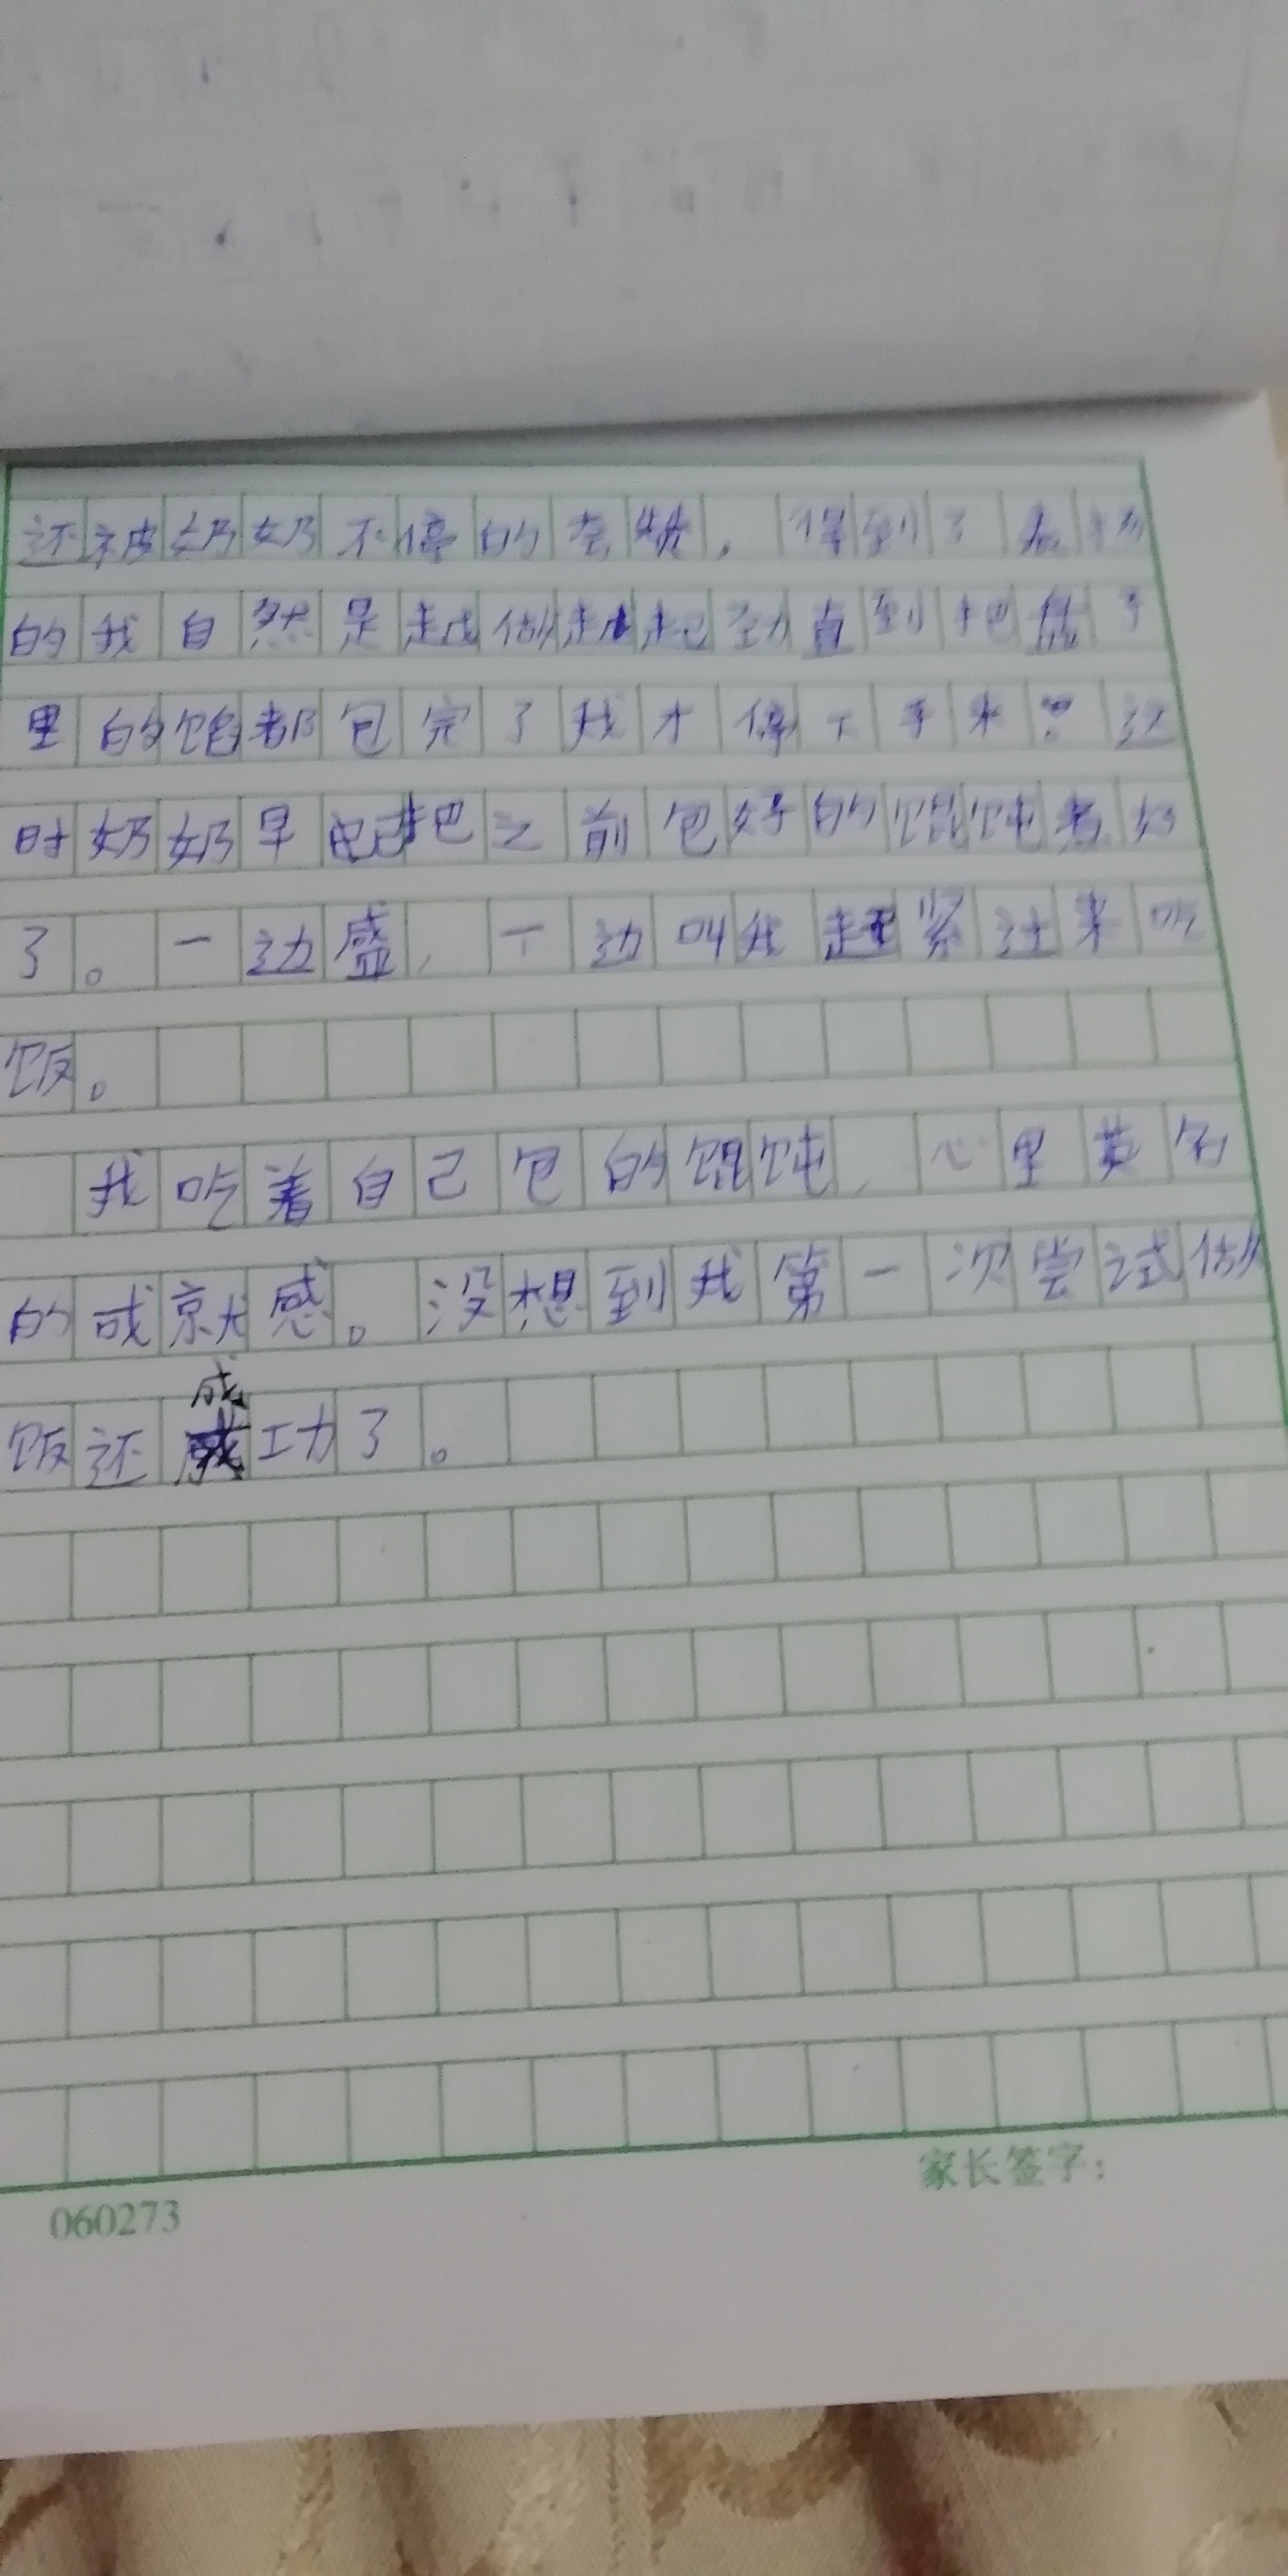 还被奶奶不停的夸奖，得到了表扬
的我自然是越做越起劲直到把盘子
里的馅都包完了我才停下手来。这
时奶奶早已把之前包好的馄饨煮好
了。一边盛，一边叫我赶紧过来吃
饭。
我吃着自己包的馄饨，心里莫名
的成就感。没想到我第一次尝试做
成
饭还功了。
家长签字：
060273